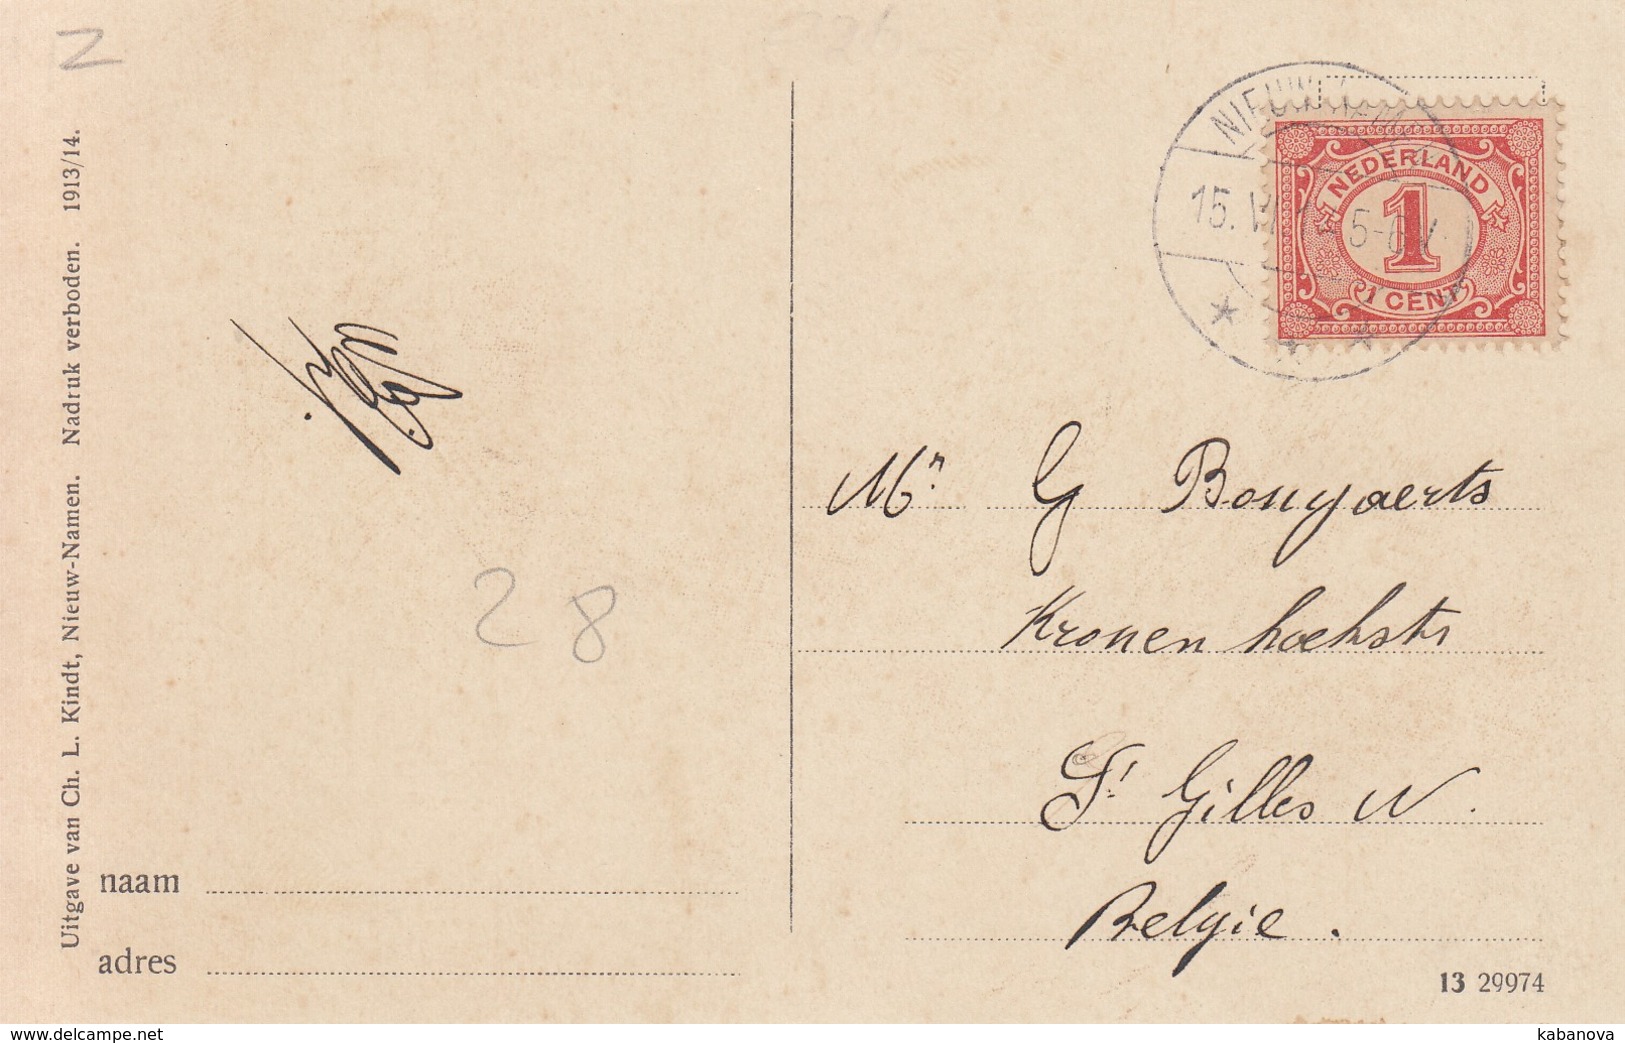 Z
Uitgave van Ch. L. Kindt, Nieuw-Namen. Nadruk verboden. 1913/14.
28
naam
adres
NEDERLAND
1
1 CENT
15. 5-6
Mr. G Bongaerts
Kronenhoekstr
St Gilles W.
Belgie.
13 29974
www.delcampe.net
kabanova